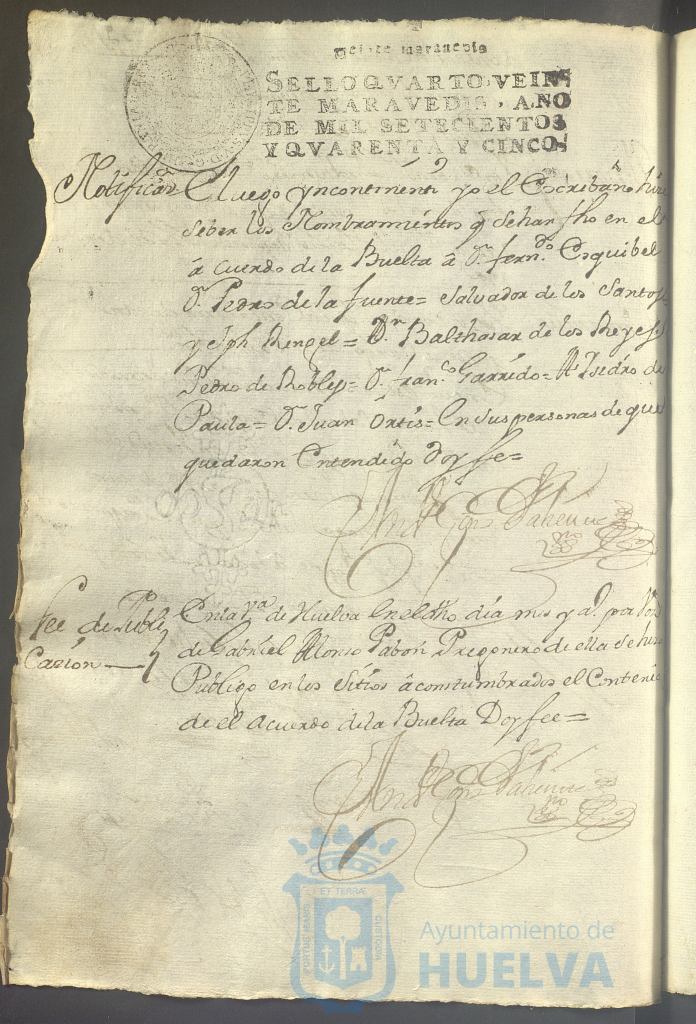 Veinte maravedis
SELLO QVARTO, VEIN
TE MARAVEDIS, AÑO
DE MIL SETECIENTOS
Y QVARENTA Y CINCO.
Notificaⁿ E luego yncontinenti yo el Escribano hize
seber los Nombramientos q̃ se han fho en el
âcuerdo de la Buelta â Dⁿ. fernᵈᵒ. Esquibel
Dⁿ. Pedro de la fuente= Salvador de los Santos
y Jph Rengel= Dⁿ. Balthasar de los Reyes
Pedro de Robles= Dⁿ. franᶜᵒ Garrido= Isidro de
Paula= Dⁿ. Juan Ortis= En sus personas de que
quedaron Entendido Doy fee=
Fee de Publi
cazion
En la vᵃ de Huelva En el dho dia mes y aº. por voz
de Gabriel Alonso Pabon Pregonero de ella se hizo
Publigo en los sitios âcomstumbrados el Conteni
de el Acuerdo de la Buelta Doy fee=
PORTUS MARIS
ET TERRÆ
CUSTODIA
Ayuntamiento de
HUELVA